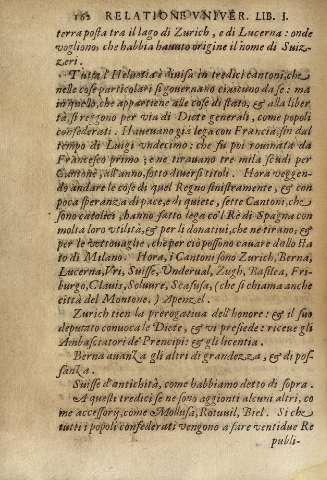 162 RELATIONE VNIVER. LIB. I.
terra posta tra il lago di Zurich, e di Lucerna: onde
vogliono, che habbia hauuto origine il nome di Suiz-
zeri.
Tutta l'Heluetia è diuisa in tredici cantoni, che
nelle cose particolari si gouernano ciascuno da se: ma
in quello, che appartiene alle cose di stato, & alla liber
tà, si reggono per via di Diete generali, come popoli
confederati. Haueuano già lega con Francia, fin dal
tempo di Luigi vndecimo: che fu poi rouinata da
Francesco primo; e ne tirauano tre mila scudi per
Cantone, all'anno, sotto diuersi titoli. Hora veggen-
do andare le cose di quel Regno sinistramente, & con
poca speranza di pace, e di quiete, sette Cantoni, che
sono catolici, hanno fatto lega co'l Rè di Spagna con
molta loro vtilità, & per li donatiui, che ne tirano, &
per le vettouaglie, che per ciò possono cauare dallo sta
to di Milano. Hora, i Cantoni sono Zurich, Berna,
Lucerna, Vri, Suisse, Underual, Zugh, Basilea, Fri-
burgo, Clauis, Soluure, Scafusa, (che si chiama anche
città del Montone,) Apenzel.
Zurich tien la prerogatiua dell'honore: & il suo
deputato conuoca le Diete, & vi presiede: riceue gli
Ambasciatori de' Prencipi: & gli licentia.
Berna auanza gli altri di grandezza, & di pos-
sanza.
Suisse d'antichità, come habbiamo detto di sopra.
A questi tredici se ne sono aggionti alcuni altri, co
me accessorij, come Mollusa, Rotuuil, Biel. Si che
tutti i popoli confederati vengono a fare ventidue Re
publi-